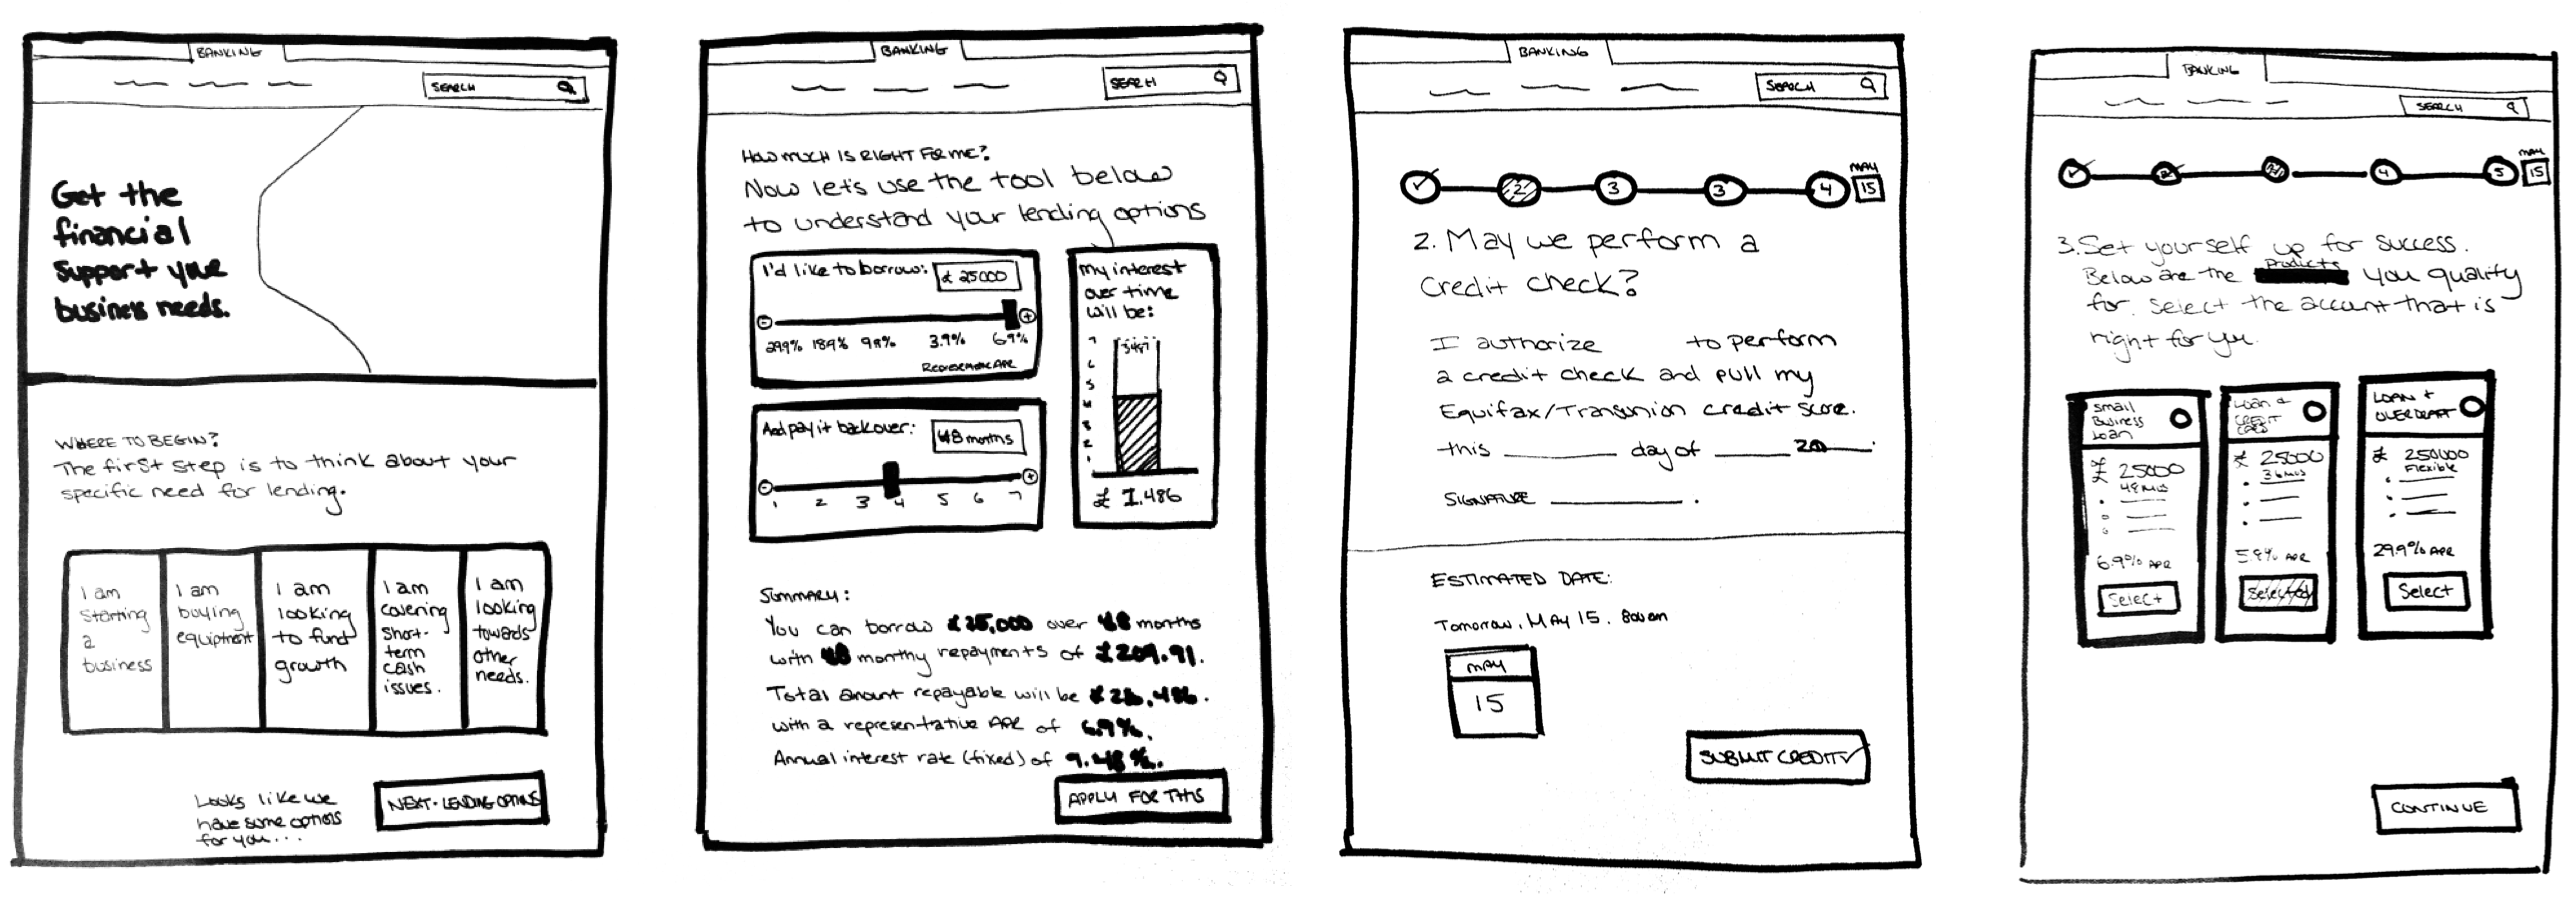 BANKING
SEARCH
Get the
financial
support your
business needs.
WHERE TO BEGIN?
The first step is to think about your
specific need for lending.
I am
starting
a
business
I am
buying
equiptment
I am
looking
to fund
growth
I am
covering
short-
term
cash
issues.
I am
looking
towards
other
needs.
Looks like we
have some options
for you...
NEXT - LENDING OPTIONS
BANKING
SEARCH
HOW MUCH IS RIGHT FOR ME?
Now let's use the tool below
to understand your lending options
I'd like to borrow: £ 25000
- +
29.9% 18.9% 9.9% 3.9% 6.9%
Representative APR
And pay it back over: 48 months
- +
1 2 3 4 5 6 7
my interest
over time
will be:
7
6
5
4
3
2
1
£ 1.486
SUMMARY:
You can borrow £25,000 over 48 months
with 48 monthly repayments of £209.91.
Total amount repayable will be £26,486.
with a representative APR of 6.9%.
Annual interest rate (fixed) of 9.48%.
APPLY FOR THIS
BANKING
SEARCH
MAY
2 3 3 4 15
2. May we perform a
credit check?
I authorize to perform
a credit check and pull my
Equifax/Transunion credit score.
this day of 20
SIGNATURE .
ESTIMATED DATE:
Tomorrow, MAY 15. 8am
MAY
15
SUBMIT CREDIT
BANKING
SEARCH
MAY
2 4 5 15
3. Set yourself up for success.
Products
Below are the you quality
for. Select the account that is
right for you.
Small
Business
Loan
£ 25000
48 MOS
6.9% APR
Select
Loan &
CREDIT
CARD
£ 25000
36 MOS
5.9% APR
Selected
LOAN +
OVERDRAFT
£ 250000
Flexible
29.9% APR
Select
CONTINUE